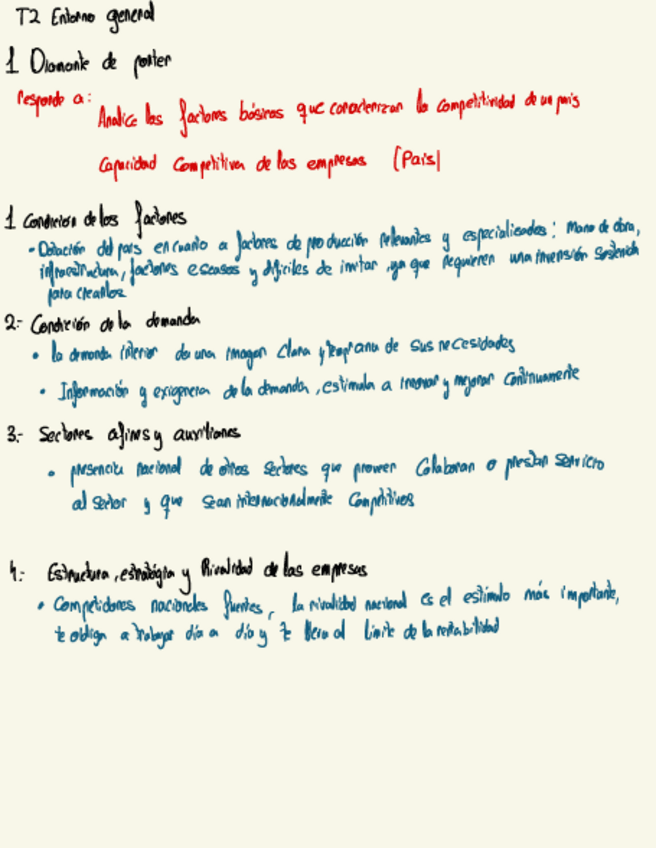 T2 Entorno general
1 Diamante de porter
responde a:
Analice los factores básicos que caracterizan la competitividad de un país
Capacidad Competitiva de las empresas (País)
1 Condicion de los factores
- Dotación del pais en cuanto a factores de producción relevantes y especializados: mano de obra,
infraestructura, factores escasos y dificiles de imitar, ya que requieren una inversión sostenida
para crearlos
2.- Condición de la demanda
• la demanda interior da una imagen clara y temprana de sus necesidades
• Información y exigencia de la demanda, estimula a innovar y mejorar continuamente
3.- Sectores afines y auxiliares
• presencia nacional de otros sectores que proveen colaboran o prestan servicio
al sector y que sean internacionalmente competitivos
4.- Estructura, estratégia y Rivalidad de las empresas
• Competidores nacionales fuertes, la rivalidad nacional es el estimulo más importante,
te obliga a trabajar día a día y te lleva al límite de la rentabilidad